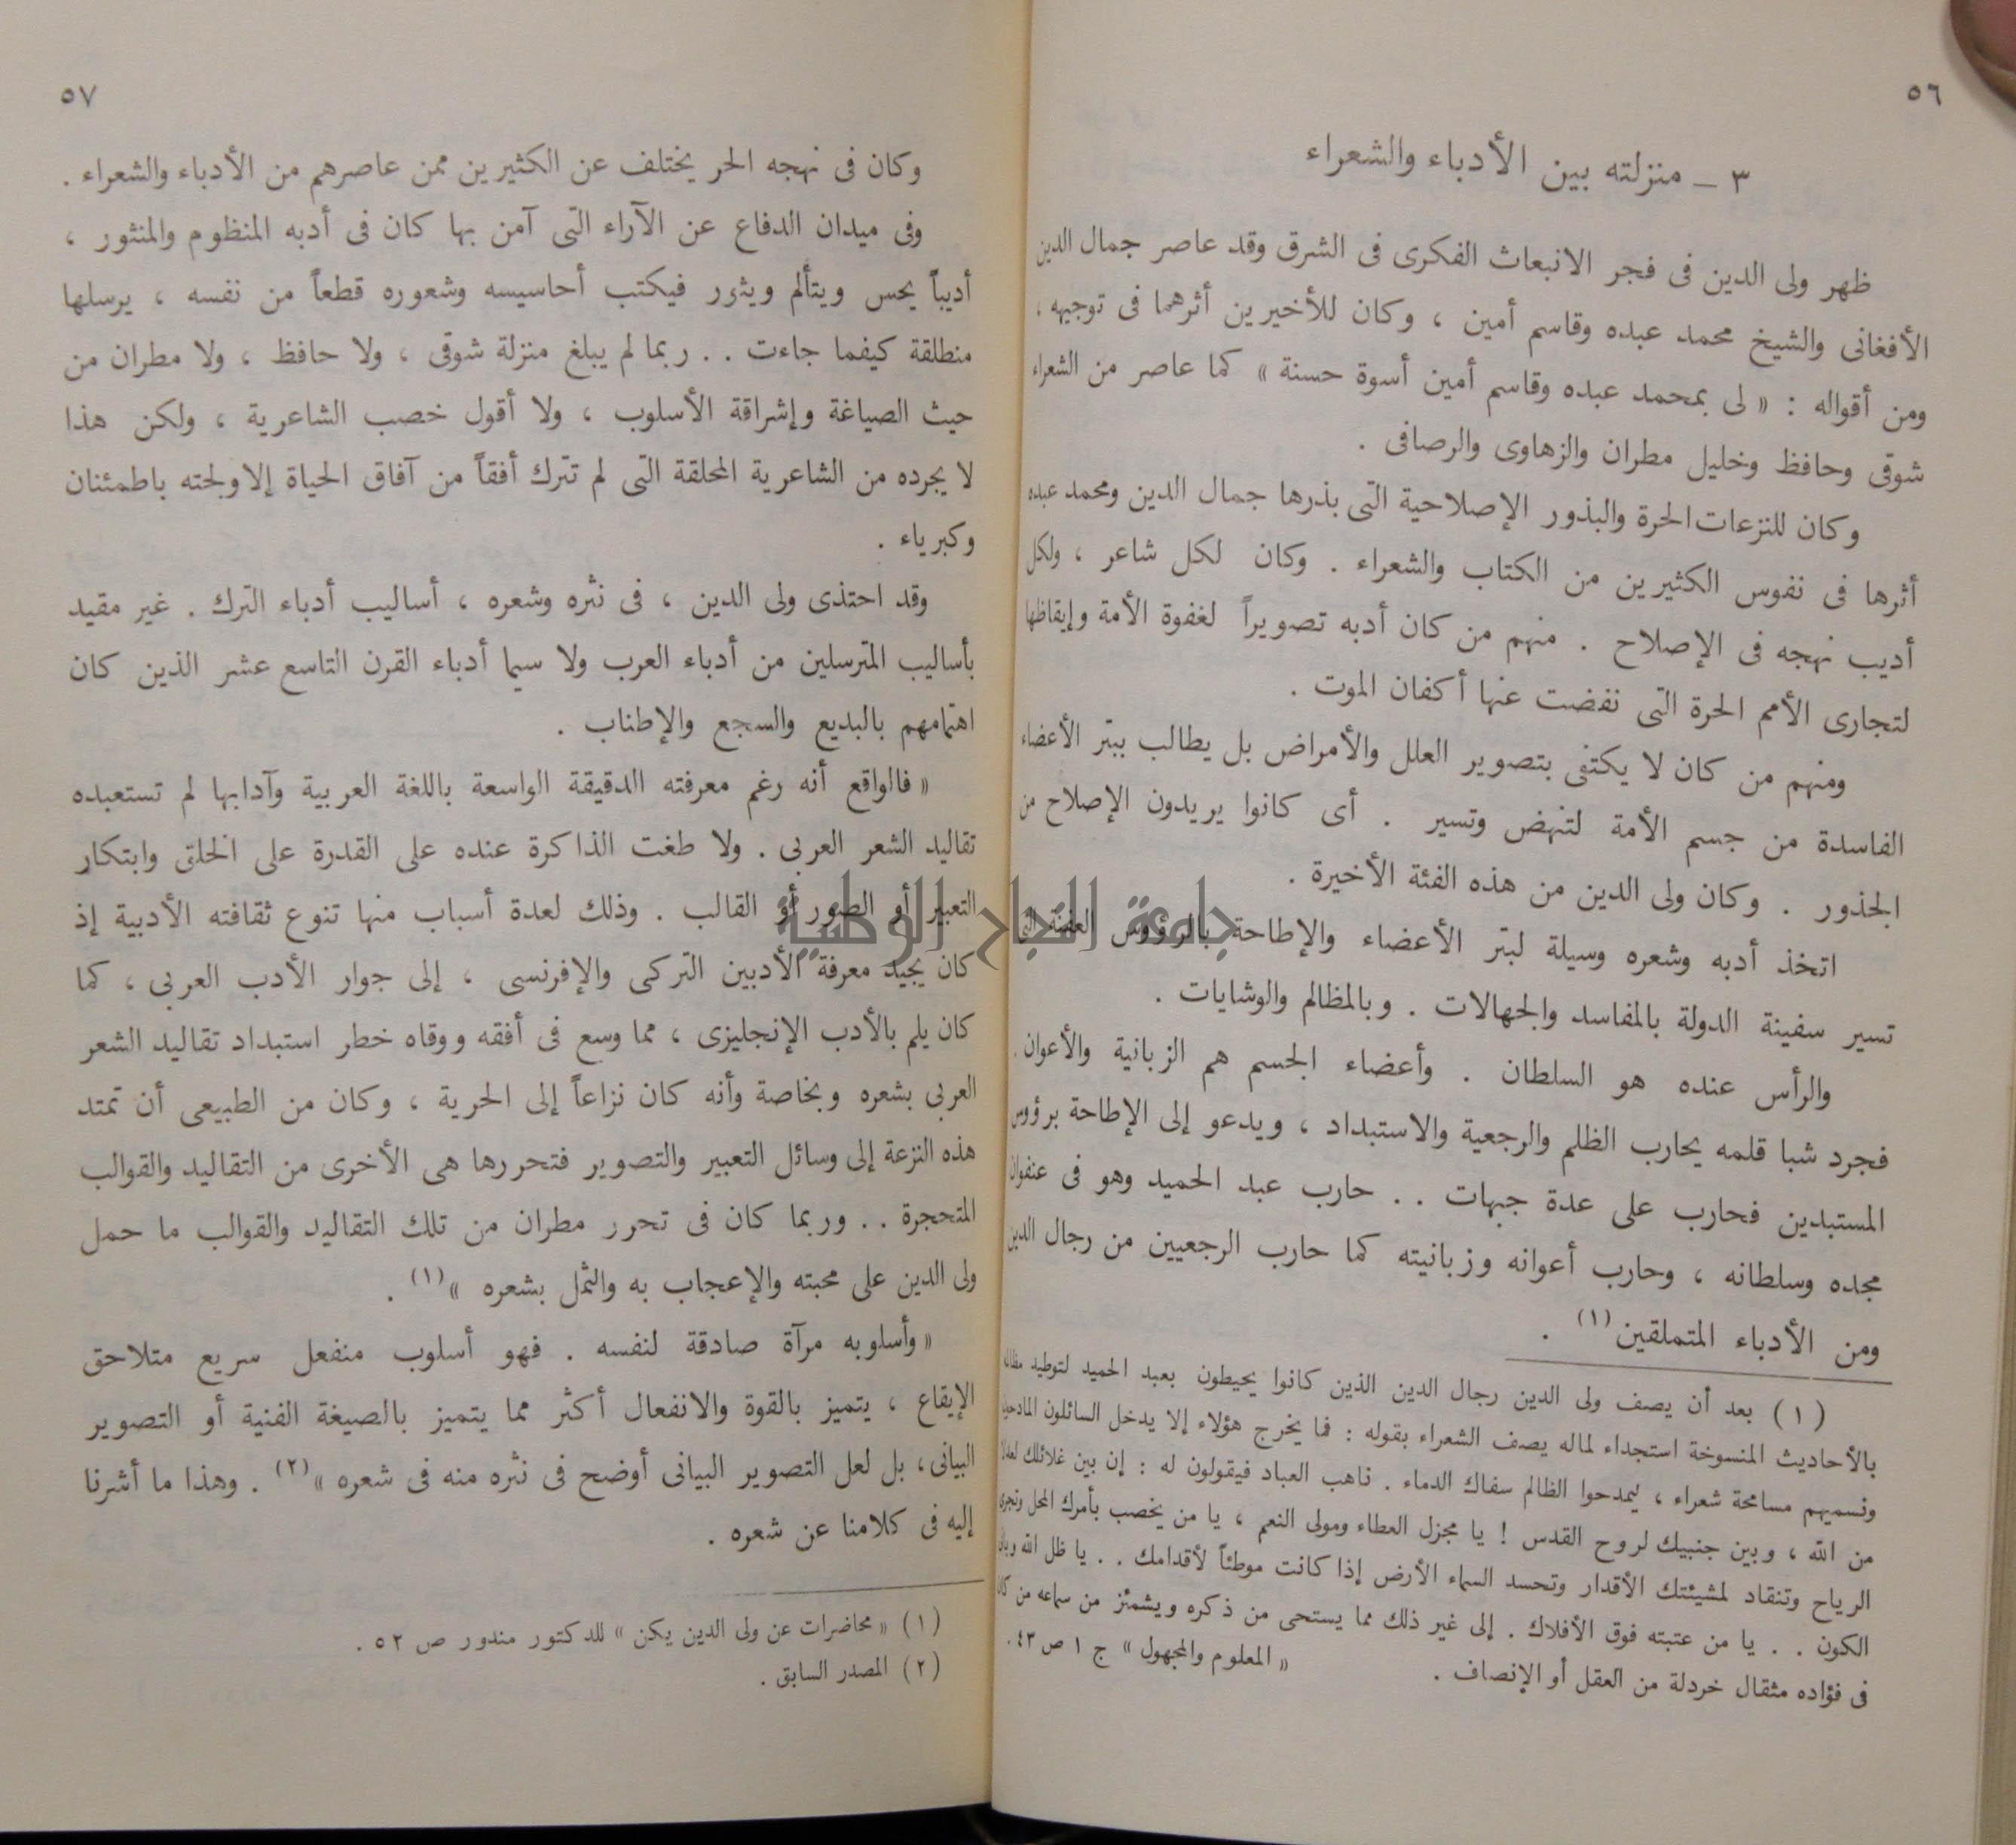 ٥٦
٣ – منزلته بين الأدباء والشعراء
ظهر ولى الدين فى فجر الانبعاث الفكرى فى الشرق وقد عاصر جمال الدين
الأفغانى والشيخ محمد عبده وقاسم أمين ، وكان للأخيرين أثرهما فى توجيهه ،
ومن أقواله : « لى بمحمد عبده وقاسم أمين أسوة حسنة » كما عاصر من الشعراء
شوقى وحافظ وخليل مطران والزهاوى والرصافى .
وكان للنزعات الحرة والبذور الإصلاحية التى بذرها جمال الدين ومحمد عبده
أثرها فى نفوس الكثيرين من الكتاب والشعراء . وكان لكل شاعر ، ولكل
أديب نهجه فى الإصلاح . منهم من كان أدبه تصويراً لغفوة الأمة وإيقاظها
لتجارى الأمم الحرة التى نفضت عنها أكفان الموت .
ومنهم من كان لا يكتفى بتصوير العلل والأمراض بل يطالب ببتر الأعضاء
الفاسدة من جسم الأمة لتنهض وتسير . أى كانوا يريدون الإصلاح من
الجذور . وكان ولى الدين من هذه الفئة الأخيرة .
اتخذ أدبه وشعره وسيلة لبتر الأعضاء والإطاحة بالرؤوس العفنة التى
تسير سفينة الدولة بالمفاسد والجهالات . وبالمظالم والوشايات .
والرأس عنده هو السلطان . وأعضاء الجسم هم الزبانية والأعوان .
فجرد شبا قلمه يحارب الظلم والرجعية والاستبداد ، ويدعو إلى الإطاحة برؤوس
المستبدين فحارب على عدة جبهات . . حارب عبد الحميد وهو فى عنفوان
مجده وسلطانه ، وحارب أعوانه وزبانيته كما حارب الرجعيين من رجال الدين
ومن الأدباء المتملقين (١) .
(١) بعد أن يصف ولى الدين رجال الدين الذين كانوا يحيطون بعبد الحميد لتوطيد مظالمه
بالأحاديث المنسوخة استجداء لماله يصف الشعراء بقوله : فما يخرج هؤلاء إلا يدخل السائلون المادحون
ونسميهم مسامحة شعراء ، ليمدحوا الظالم سفاك الدماء . ناهب العباد فيقولون له : إن بين غلائلك لعدلا
من الله ، وبين جنبيك لروح القدس ! يا مجزل العطاء ومولى النعم ، يا من يخصب بأمرك المحل وتجرى
الرياح وتنقاد لمشيئتك الأقدار وتحسد السماء الأرض إذا كانت موطئاً لأقدامك . . يا ظل الله
الكون . . يا من عتبته فوق الأفلاك . إلى غير ذلك مما يستحى من ذكره ويشمئز من سماعه من كان
فى فؤاده مثقال خردلة من العقل أو الإنصاف . « المعلوم والمجهول » ج ١ ص ٤٣ .
٥٧
وكان فى نهجه الحر يختلف عن الكثيرين ممن عاصرهم من الأدباء والشعراء .
وفى ميدان الدفاع عن الآراء التى آمن بها كان فى أدبه المنظوم والمنثور ،
أديباً يحس ويتألم ويثور فيكتب أحاسيسه وشعوره قطعاً من نفسه ، يرسلها
منطلقة كيفما جاءت . . ربما لم يبلغ منزلة شوقى ، ولا حافظ ، ولا مطران من
حيث الصياغة وإشراقة الأسلوب ، ولا أقول خصب الشاعرية ، ولكن هذا
لا يجرده من الشاعرية المحلقة التى لم تترك أفقاً من آفاق الحياة إلا ولجته باطمئنان
وكبرياء .
وقد احتذى ولى الدين ، فى نثره وشعره ، أساليب أدباء الترك . غير مقيد
بأساليب المترسلين من أدباء العرب ولا سيما أدباء القرن التاسع عشر الذين كان
اهتمامهم بالبديع والسجع والإطناب .
« فالواقع أنه رغم معرفته الدقيقة الواسعة باللغة العربية وآدابها لم تستعبده
تقاليد الشعر العربى . ولا طغت الذاكرة عنده على القدرة على الخلق وابتكار
التعبير أو الصور أو القالب . وذلك لعدة أسباب منها تنوع ثقافته الأدبية إذ
كان يجيد معرفة الأدبين التركى والإفرنسى ، إلى جوار الأدب العربى ، كما
كان يلم بالأدب الإنجليزى ، مما وسع فى أفقه ووقاه خطر استبداد تقاليد الشعر
العربى بشعره وبخاصة وأنه كان نزاعاً إلى الحرية ، وكان من الطبيعى أن تمتد
هذه النزعة إلى وسائل التعبير والتصوير فتحررها هى الأخرى من التقاليد والقوالب
المتحجرة . . وربما كان فى تحرر مطران من تلك التقاليد والقوالب ما حمل
ولى الدين على محبته والإعجاب به والتمثل بشعره » (١) .
« وأسلوبه مرآة صادقة لنفسه . فهو أسلوب منفعل سريع متلاحق
الإيقاع ، يتميز بالقوة والانفعال أكثر مما يتميز بالصيغة الفنية أو التصوير
البيانى ، بل لعل التصوير البيانى أوضح فى نثره منه فى شعره » (٢) . وهذا ما أشرنا
إليه فى كلامنا عن شعره .
(١) « محاضرات عن ولى الدين يكن » للدكتور مندور ص ٥٢ .
(٢) المصدر السابق .
جامعة النجاح الوطنية